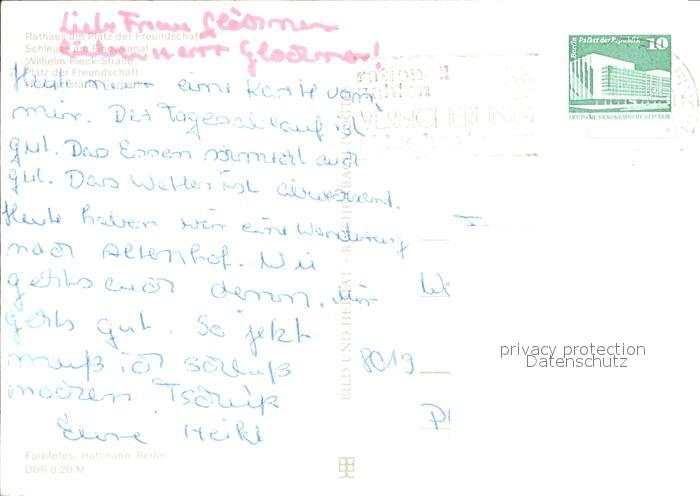 Liebe Frau Glöckner
lieber Herr Glöckner!
Rathaus am Platz der Freundschaft
Schleuse am Finowkanal
Wilhelm-Pieck-Straße
Platz der Freundschaft
Heute nur eine Karte von
mir. Der Tagesablauf ist
gut. Das Essen schmeckt auch
gut. Das Wetter ist
Heute haben wir eine Wanderung
nach Altenhof. Wie
gehts euch denn. Mir
gehts gut. So jetzt
muß ich schluß
machen Tschüß
Eure Heike
Farbfotos: Hoffmann, Berlin
DDR 0,20 M
BILD UND HEIMAT · REICHENBACH
rationell
VERSICHERUNG
Berlin Palast der Republik 10
DEUTSCHE DEMOKRATISCHE REPUBLIK
8019
privacy protection
Datenschutz